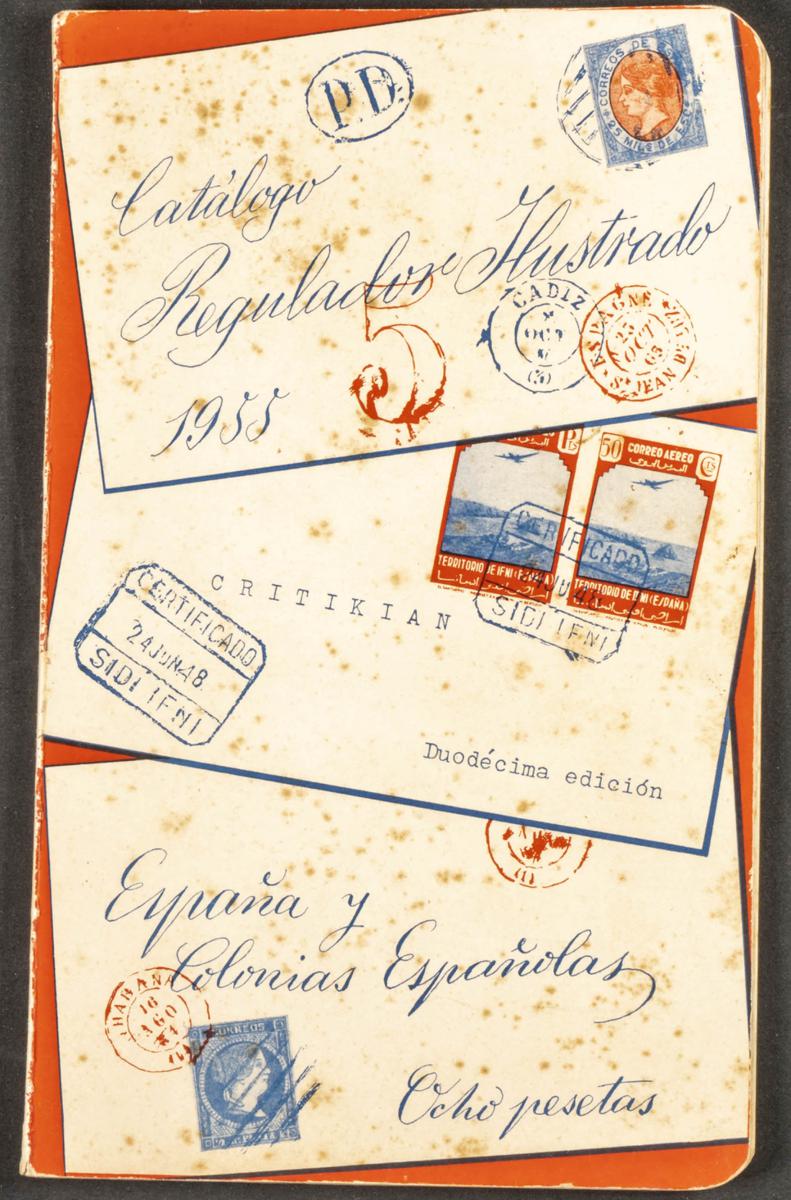 P.D.
CORREOS DE
25 MILS DE ESCO
Catálogo
Regulador Ilustrado
5
CADIZ
OCT
(3)
ESPAGNE
25
OCT
ST JEAN DE LUZ
1955
PTS
50 CORREO AEREO CTS
TERRITORIO DE IFNI (ESPAÑA)
TERRITORIO DE IFNI (ESPAÑA)
CERTIFICADO
SIDI IFNI
CRITIKIAN
CERTIFICADO
24 JUN 48
SIDI IFNI
Duodécima edición
(1)
España y
Colonias Españolas
HABANA
16
AGO
CORREOS
Ocho pesetas